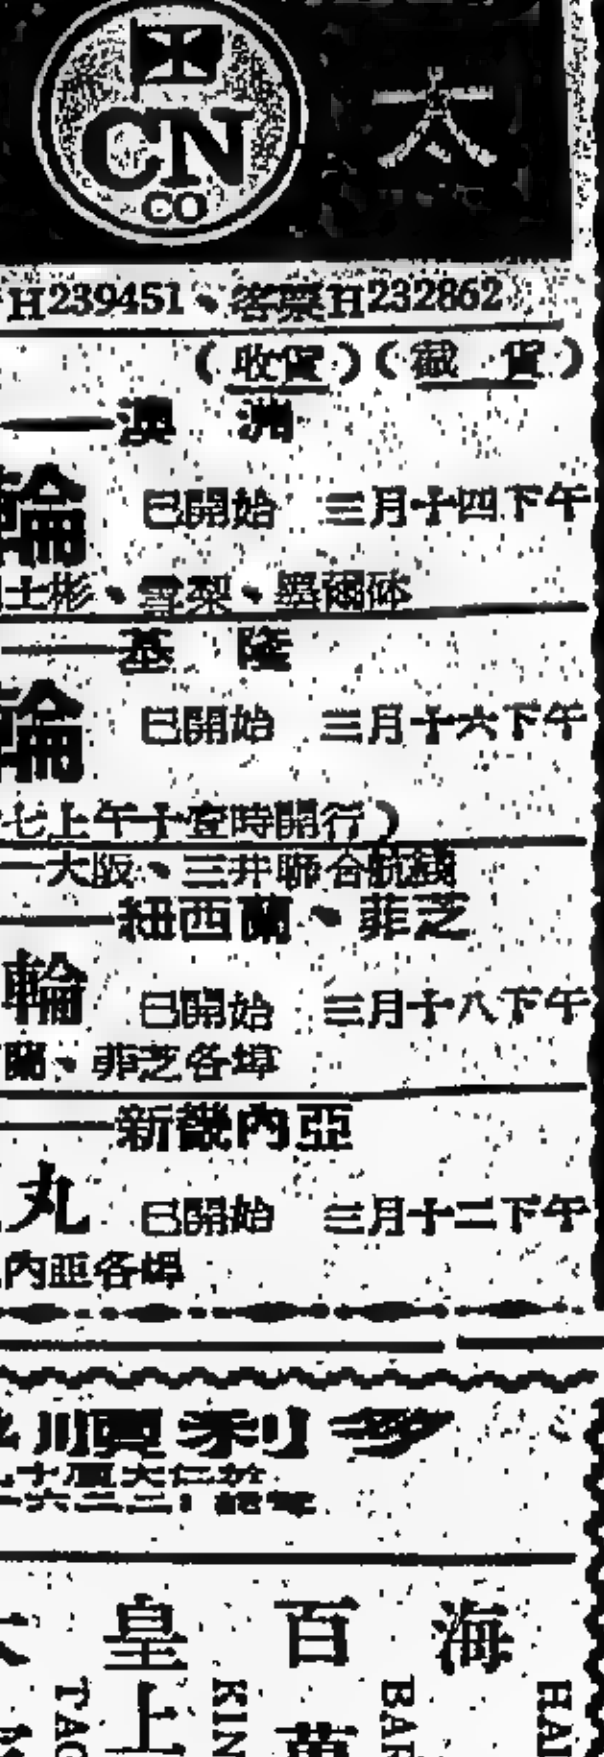 CN
CO
太
H239451、客票H232862
(收貨)(截 貨)
澳 洲
輪 已開始 三月十四下午
士彬、雪梨、墨爾砵
基 隆
輪 已開始 三月十六下午
七上午十壹時開行)
大阪、三井聯合航綫
紐西蘭、菲芝
輪 已開始 三月十八下午
蘭、菲芝各埠
新畿內亞
丸 已開始 三月十二下午
內亞各埠
順利多
皇上
KIN
百萬
BAN
海
HAI
TAG